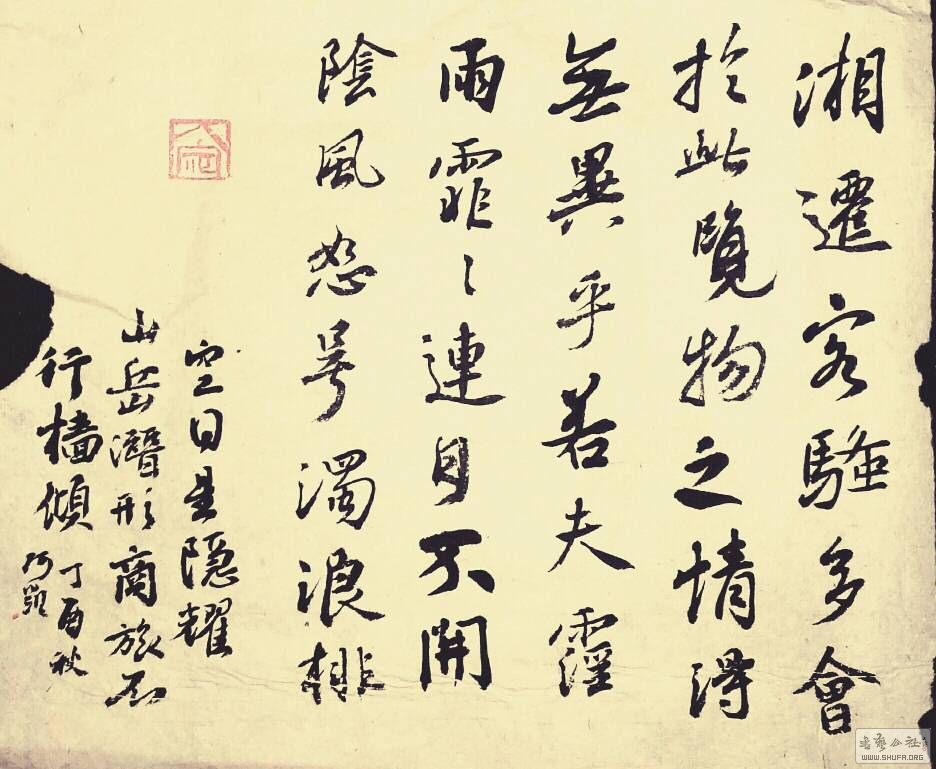 湘遷客騷多會
於此覽物之情得
無異乎若夫霪
雨霏〻連月不開
陰風怒号濁浪排
空日星隱耀
山岳潛形商旅不
行檣傾
丁酉秋
书艺公社
WWW.SHUFA.ORG